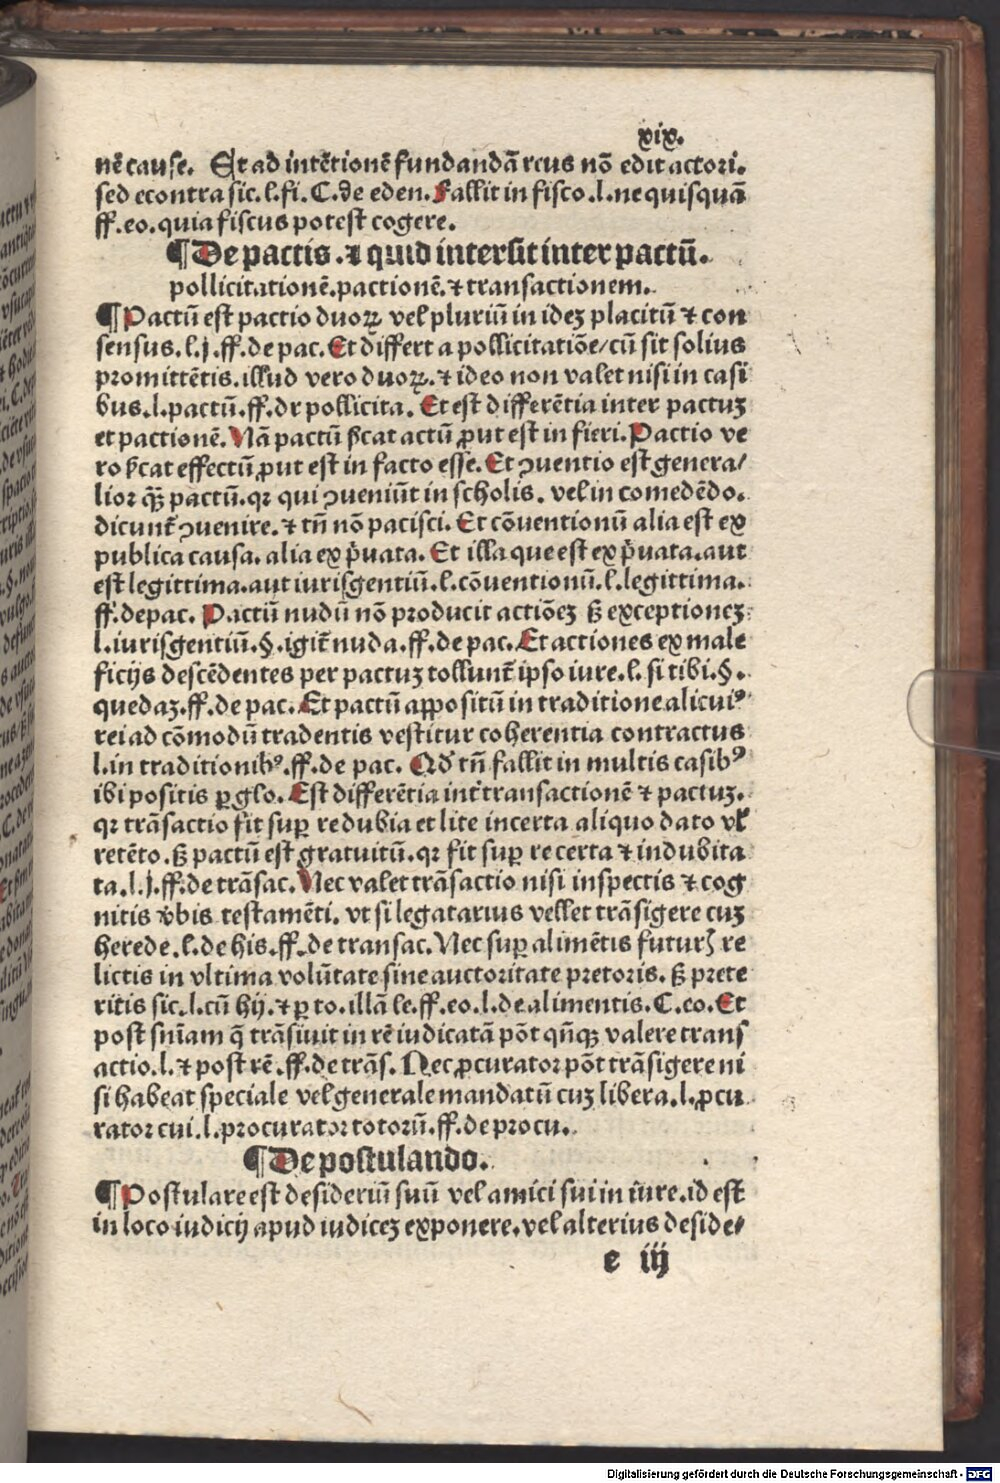 xix.
nē cause. Et ad intētionē fundandā reus nō edit actori.
sed econtra sic.l.fi.C.de eden. Fallit in fisco.l.ne quisquā
ff.eo.quia fiscus potest cogere.
¶De pactis.⁊ quid intersit inter pactū.
pollicitationē.pactionē.⁊ transactionem.
¶Pactū est pactio duoꝝ vel pluriū in ideꝫ placitū ⁊ con
sensus.l.j.ff.de pac. Et differt a pollicitatiōe/cū sit solius
promittētis.illud vero duoꝝ.⁊ ideo non valet nisi in casi
bus.l.pactū.ff.dr pollicita. Et est differētia inter pactuꝫ
et pactionē. Nā pactū s̄cat actū ꝓut est in fieri. Pactio ve
ro s̄cat effectū ꝓut est in facto esse. Et ꝯuentio est genera/
lior qꝫ̄ pactū.qꝛ qui ꝯueniūt in scholis. vel in comedēdo.
dicunt̄ ꝯuenire.⁊ tn̄ nō pacisci. Et cōuentionū alia est ex
publica causa. alia ex p̄uata. Et illa que est ex p̄uata.aut
est legittima.aut iurisgentiū.l.cōuentionū.l.legittima.
ff.de pac. Pactū nudū nō producit actiōeꝫ sꝫ exceptioneꝫ
l.iurisgentiū.§.igit̄ nuda.ff.de pac. Et actiones ex male
ficijs descēdentes per pactuꝫ tollunt̄ ipso iure.l.si tibi.§.
quedaꝫ.ff.de pac. Et pactū appositū in traditione alicuiꝰ
rei ad cōmodū tradentis vestitur coherentia contractus
l.in traditionibꝰ.ff.de pac. Qd̄ tn̄ fallit in multis casibꝰ
ibi positis ꝑ glo. Est differētia int̄ transactionē ⁊ pactuꝫ.
qꝛ trāsactio fit suꝑ re dubia et lite incerta aliquo dato vl̄
retēto. sꝫ pactū est gratuitū.qꝛ fit suꝑ re certa ⁊ indubita
ta.l.j.ff.de trāsac. Nec valet trāsactio nisi inspectis ⁊ cog
nitis v̄bis testamēti. vt si legatarius vellet trāsigere cuꝫ
herede.l.de his.ff.de transac. Nec suꝑ alimētis futurꝭ re
lictis in vltima volūtate sine auctoritate pretoris. sꝫ prete
ritis sic.l.cū hij.⁊ ꝑ to.illā le.ff.eo.l.de alimentis.C.eo. Et
post sn̄iam q̄ trāsiuit in rē iudicatā pōt qn̄qꝫ valere trans
actio.l.⁊ post rē.ff.de trās. Nec ꝓcurator pōt trāsigere ni
si habeat speciale vel generale mandatū cuꝫ libera.l.ꝓcu
rator cui.l.procurator totorū.ff.de procu.
¶De postulando.
¶Postulare est desideriū suū vel amici sui in iure.id est
in loco iudicij apud iudiceꝫ exponere.vel alterius deside/
e iij
Digitalisierung gefördert durch die Deutsche Forschungsgemeinschaft - DFG